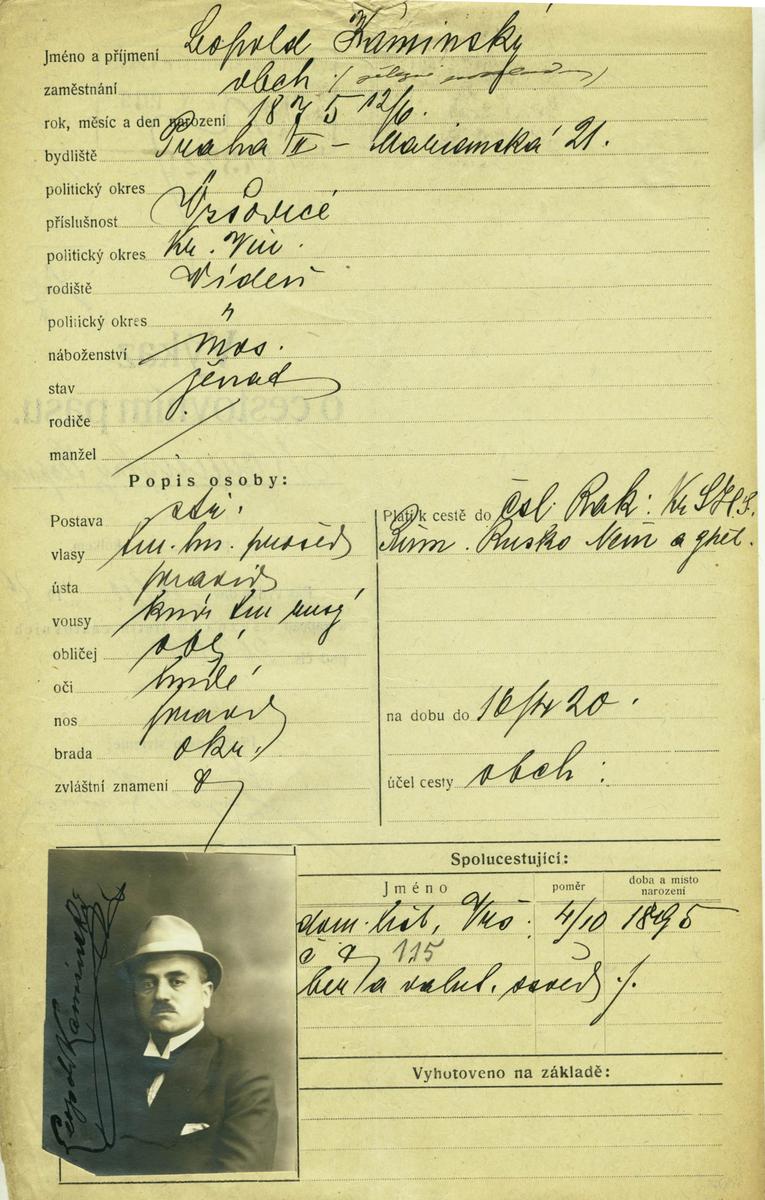 Jméno a příjmení Leopold Kaminský
zaměstnání obch. (
rok, měsíc a den narození 1875 12/6.
bydliště Praha II – Mariánská 21.
politický okres
příslušnost Vršovice
politický okres Kr. Vin.
rodiště Vídeň
politický okres "
náboženství mos.
stav ženat
rodiče
manžel
Popis osoby:
Postava stř.
vlasy tm. hn. prošed
ústa pravid
vousy knír tm rusý
obličej obl
oči hnědé
nos pravid
brada okr.
zvláštní znamení
Platí k cestě do čsl. Rak: Kr S.H.S.
Rum. Rusko Něm a zpět.
na dobu do 16/ 20.
účel cesty obch:
Spolucestující:
Jméno poměr doba a místo narození
dom. list, Vrš. 4/10 1895
č 115
ber a valut. osvěd ./.
Vyhotoveno na základě:
Leopold Kaminský